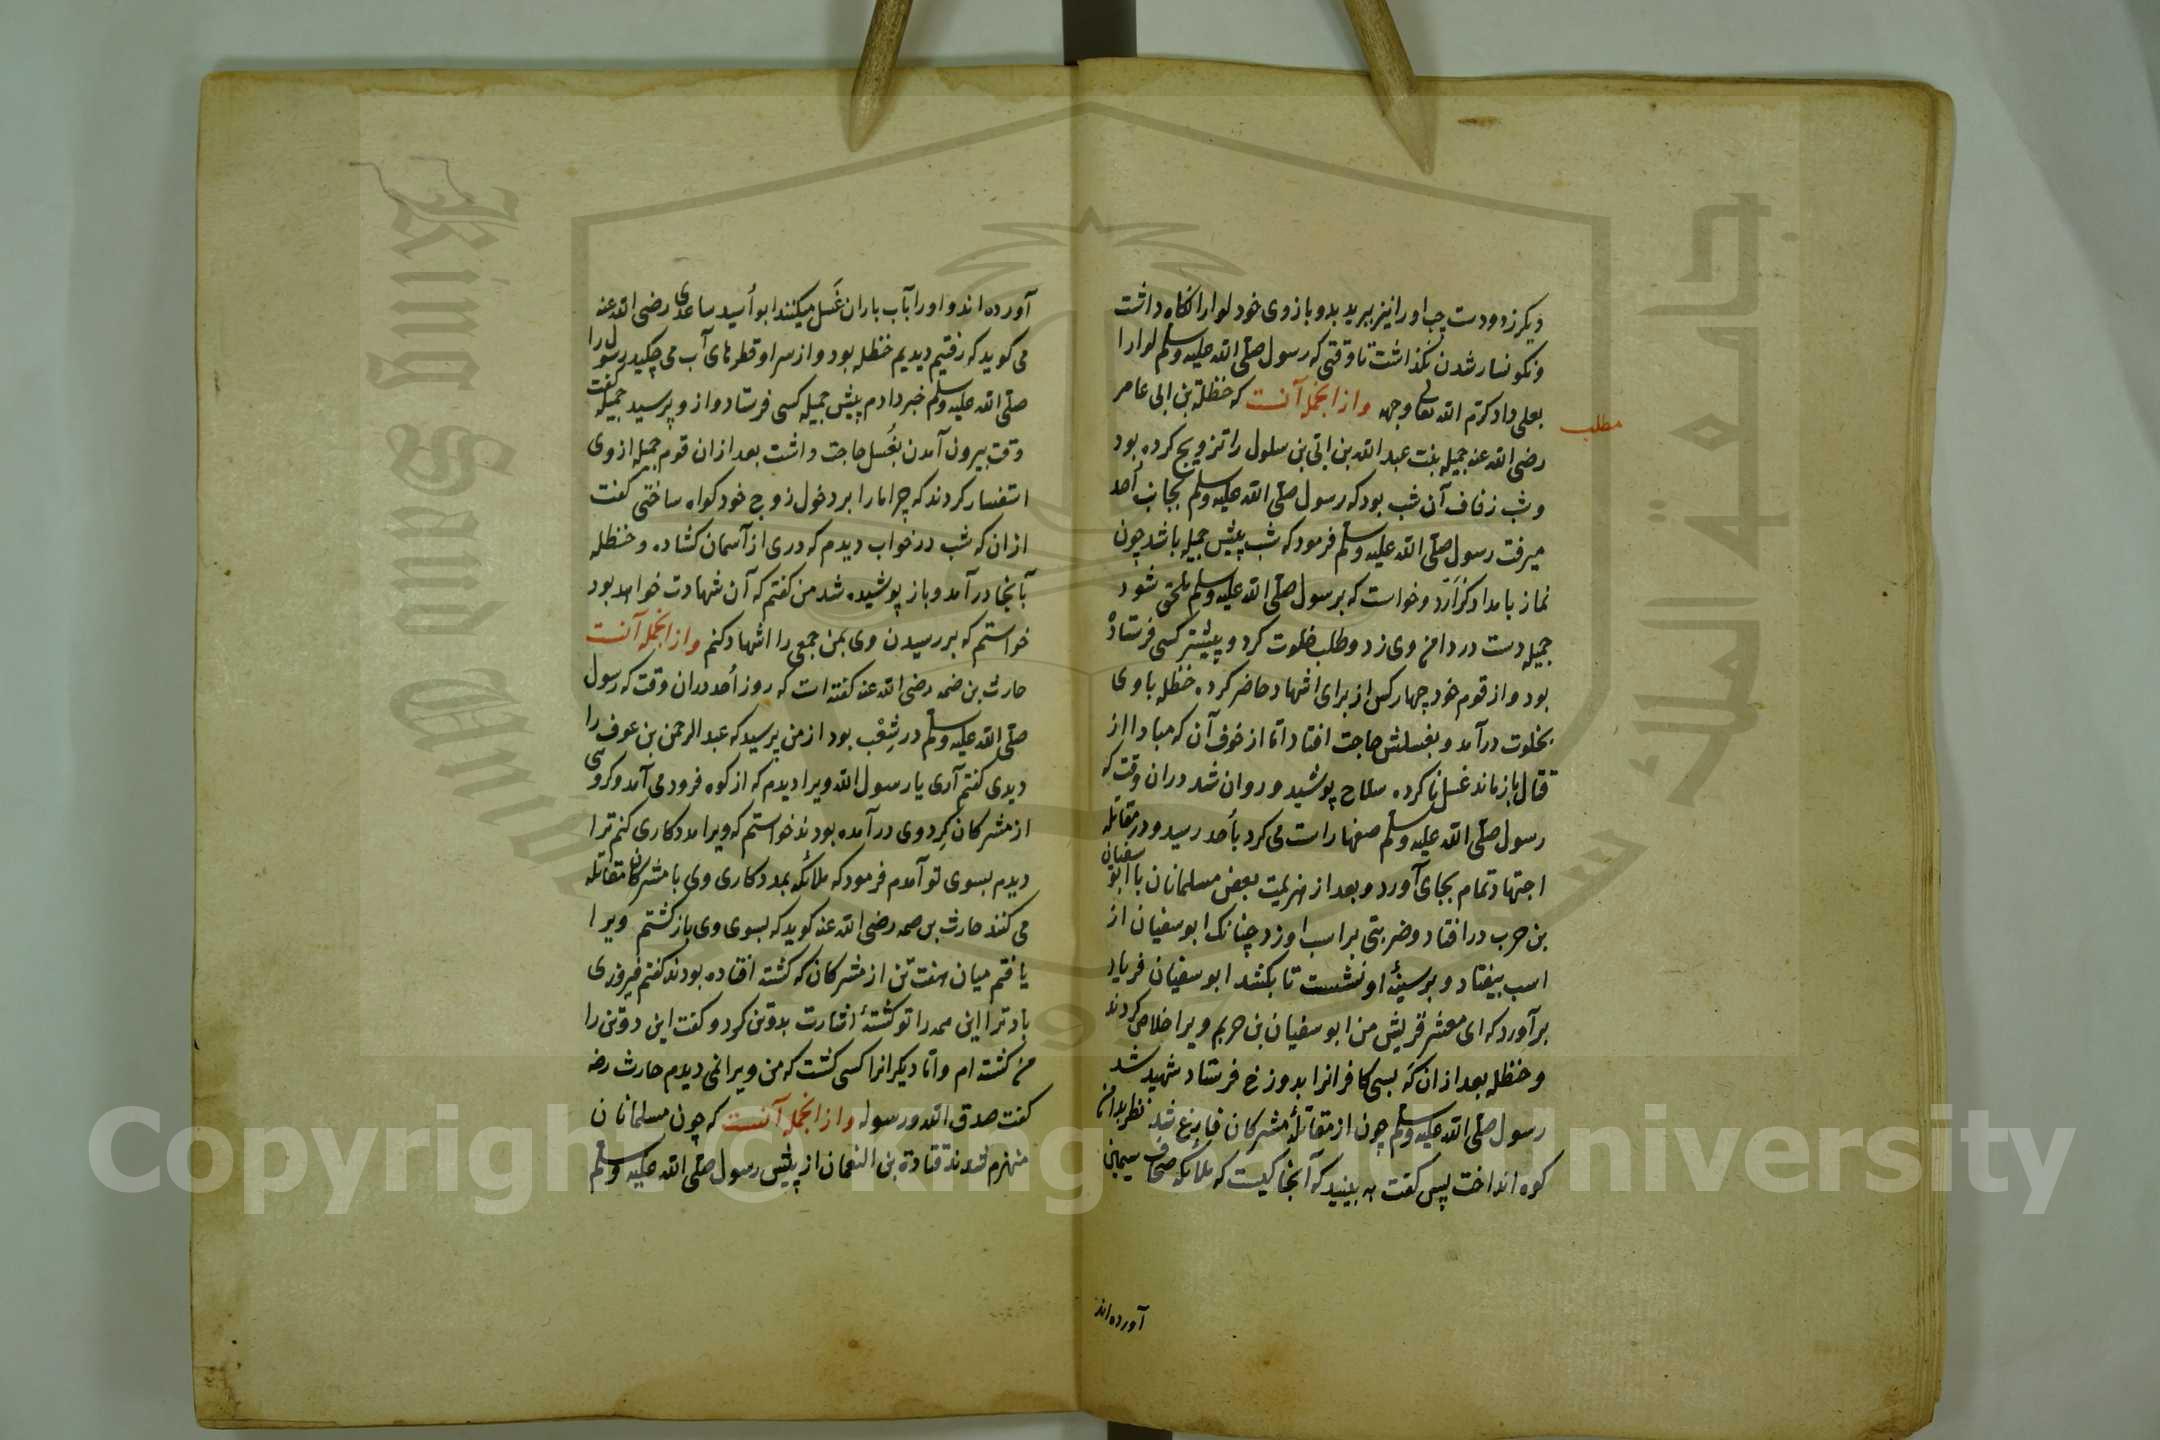 دیکر زد و دست چپ اورا نیز ببرید بدو بازوی خود لوارا نکاه داشت
ونکونسار شدن نکذاشت تا وقتی که رسول صلی الله علیه وسلم لوارا
بعلی داد کرم الله تعالی وجهه وازانجمله آنست که حنظلة بن ابی عامر
مطلب
رضی الله عنه جمیله بنت عبد الله بن ابی بن سلول را تزویج کرده بود
وشب زفاف آن شب بود که رسول صلی الله علیه وسلم بجانب أحد
میرفت رسول صلی الله علیه وسلم فرمود که شب پیش جمیله باشد چون
نماز بامداد کزارد وخواست که برسول صلی الله علیه وسلم ملحق شود
جمیله دست در دامن وی زد وطلب خلوت کرد و پیشتر کسی فرستاده
بود واز قوم خود چهار کس از برای اشهاد حاضر کرده حنظله باوی
بخلوت درآمد و بغسلش حاجت افتاد اما از خوف آن که مبادا از
قتال باز ماند غسل نا کرده سلاح پوشید و روان شد دران وقت که
رسول صلی الله علیه وسلم صفهارا ست می کرد بأحد رسید و در مقاتله
اجتهاد تمام بجای آورد و بعد از هزیمت بعض مسلمانان با ابو سفیان
بن حرب در افتاد وضربتی بر اسب او زد چنانک ابو سفیان از
اسب بیفتاد و بر سینهٔ او نشست تا بکشد ابو سفیان فریاد
برآورد که ای معشر قریش من ابو سفیان بن حربم ویرا خلاص کردند
و حنظله بعد ازان که بسی کافرانرا بدوزخ فرستاد شهید شد
رسول صلی الله علیه وسلم چون از مقاتلهٔ مشرکان فارغ شد نظر بدان
کوه انداخت پس کفت به بینید که آنجا کیست که ملائکه صحاف سیمین
آورده اند
آورده اند و اورا بآب باران غسل میکنند ابو أسید ساعدی رضی الله عنه
می کوید که رفتیم دیدیم حنظله بود و از سر او قطرهای آب می چکید رسول را
صلی الله علیه وسلم خبر دادم پیش جمیله کسی فرستاد واز و پرسید جمیله کفت
وقت بیرون آمدن بغسل حاجت داشت بعد ازان قوم جمیله از وی
استفسار کردند که چرا مارا بر دخول زوج خود کواه ساختی کفت
ازان که شب در خواب دیدم که دری از آسمان کشاده و حنظله
بآنجا درآمد و باز پوشیده شد من کفتم که آن شهادت خواهد بود
خواستم که بر رسیدن وی بمن جمعی را اشهاد کنم وازانجمله آنست
حارث بن صمه رضی الله عنه کفته است که روز أحد دران وقت که رسول
صلی الله علیه وسلم در شعب بود از من پرسید که عبد الرحمن بن عوف را
دیدی کفتم آری یا رسول الله ویرا دیدم که از کوه فرود می آمد وکروهی
از مشرکان کرد وی درآمده بودند خواستم که ویرا مددکاری کنم ترا
دیدم بسوی تو آمدم فرمود که ملائکه بمددکاری وی با مشرکان مقاتله
می کنند حارث بن صمه رضی الله عنه کوید که بسوی وی باز کشتم ویرا
یافتم میان هفت تن از مشرکان که کشته افتاده بودند کفتم فیروزی
باد ترا این همه را تو کشتهٔ اشارت بدو تن کرد و کفت این دو تن را
من کشته ام واما دیکرانرا کسی کشت که من ویرا نمی دیدم حارث رضه
کفت صدق الله ورسوله وازانجمله آنست که چون مسلمانان
منهزم شدند قتادة بن النعمان از پیش رسول صلی الله علیه وسلم
Copyright © King Saud University